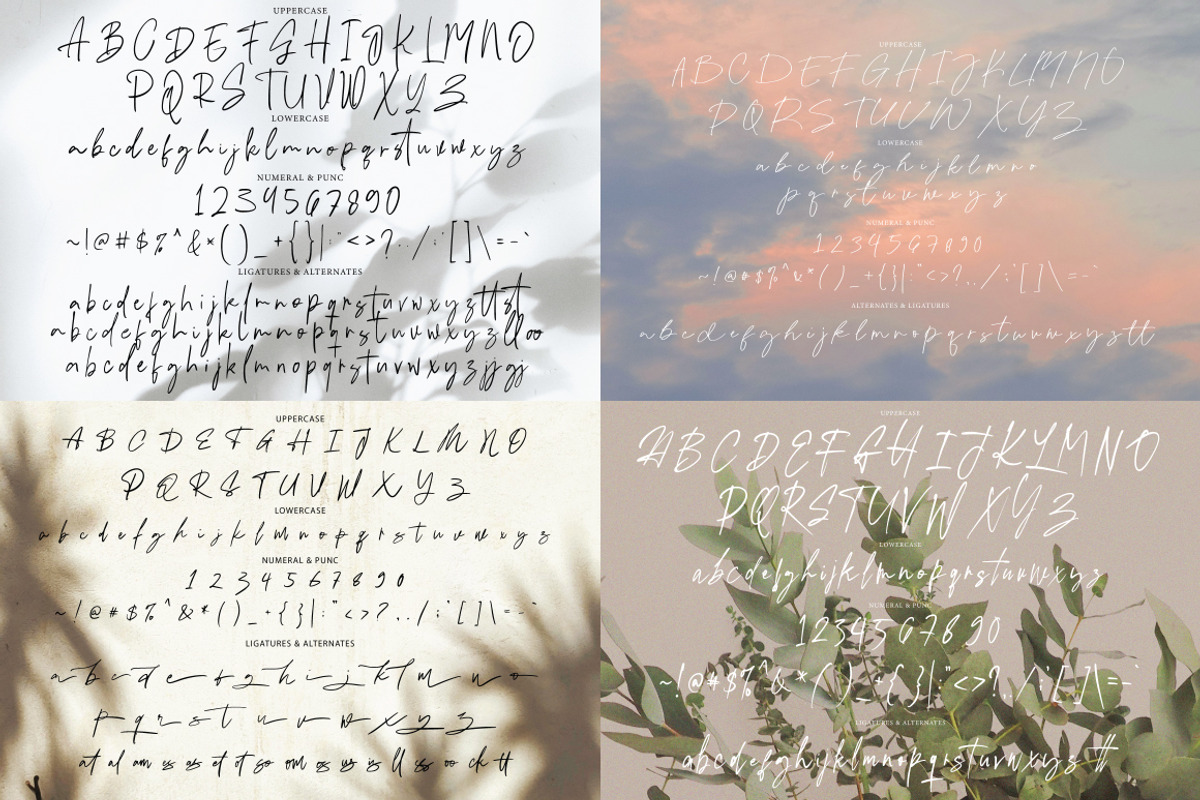 UPPERCASE
A B C D E F G H I J K L M N O
P Q R S T U V W X Y Z
LOWERCASE
a b c d e f g h i j k l m n o p q r s t u v w x y z
NUMERAL & PUNC
1 2 3 4 5 6 7 8 9 0
~ ! @ # $ % ^ & * ( ) _ + { } | : " < > ? , . / ; ' [ ] \ = - `
LIGATURES & ALTERNATES
a b c d e f g h i j k l m n o p q r s t u v w x y z tt st
a b c d e f g h i j k l m n o p q r s t u v w x y z ll oo
a b c d e f g h i j k l m n o p q r s t u v w x y z jj gj
UPPERCASE
A B C D E F G H I J K L M N O
P Q R S T U V W X Y Z
LOWERCASE
a b c d e f g h i j k l m n o
p q r s t u v w x y z
NUMERAL & PUNC
1 2 3 4 5 6 7 8 9 0
~ ! @ # $ % ^ & * ( ) _ + { } | : " < > ? , . / ; ' [ ] \ = - `
ALTERNATES & LIGATURES
a b c d e f g h i j k l m n o p q r s t u v w x y z tt
UPPERCASE
A B C D E F G H I J K L M N O
P Q R S T U V W X Y Z
LOWERCASE
a b c d e f g h i j k l m n o p q r s t u v w x y z
NUMERAL & PUNC
1 2 3 4 5 6 7 8 9 0
~ ! @ # $ % ^ & * ( ) _ + { } | : " < > ? , . / ; ' [ ] \ = - `
LIGATURES & ALTERNATES
a b c d e f g h i j k l m n o
p q r s t u v w x y z
at al am is as et it so om us is ll ss oo ck tt
UPPERCASE
A B C D E F G H I J K L M N O
P Q R S T U V W X Y Z
LOWERCASE
a b c d e f g h i j k l m n o p q r s t u v w x y z
NUMERAL & PUNC
1 2 3 4 5 6 7 8 9 0
~ ! @ # $ % ^ & * ( ) _ + { } | : " < > ? , . / ; ' [ ] \ = - `
LIGATURES & ALTERNATES
a b c d e f g h i j k l m n o p q r s t u v w x y z tt